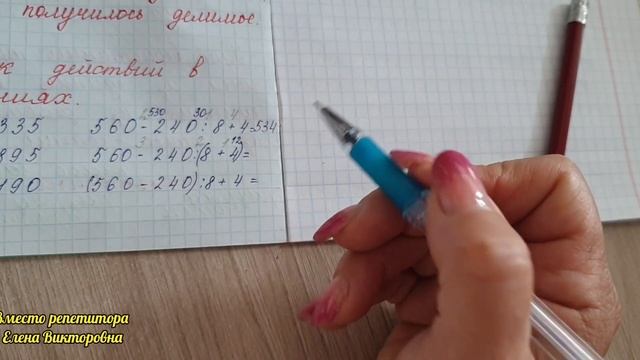 получилось делимое.
к действий в
ниях.
530 30
335 560-240:8+4=534
895 560-240:(8+4)=
12
190 (560-240):8+4=
Вместо репетитора
Елена Викторовна